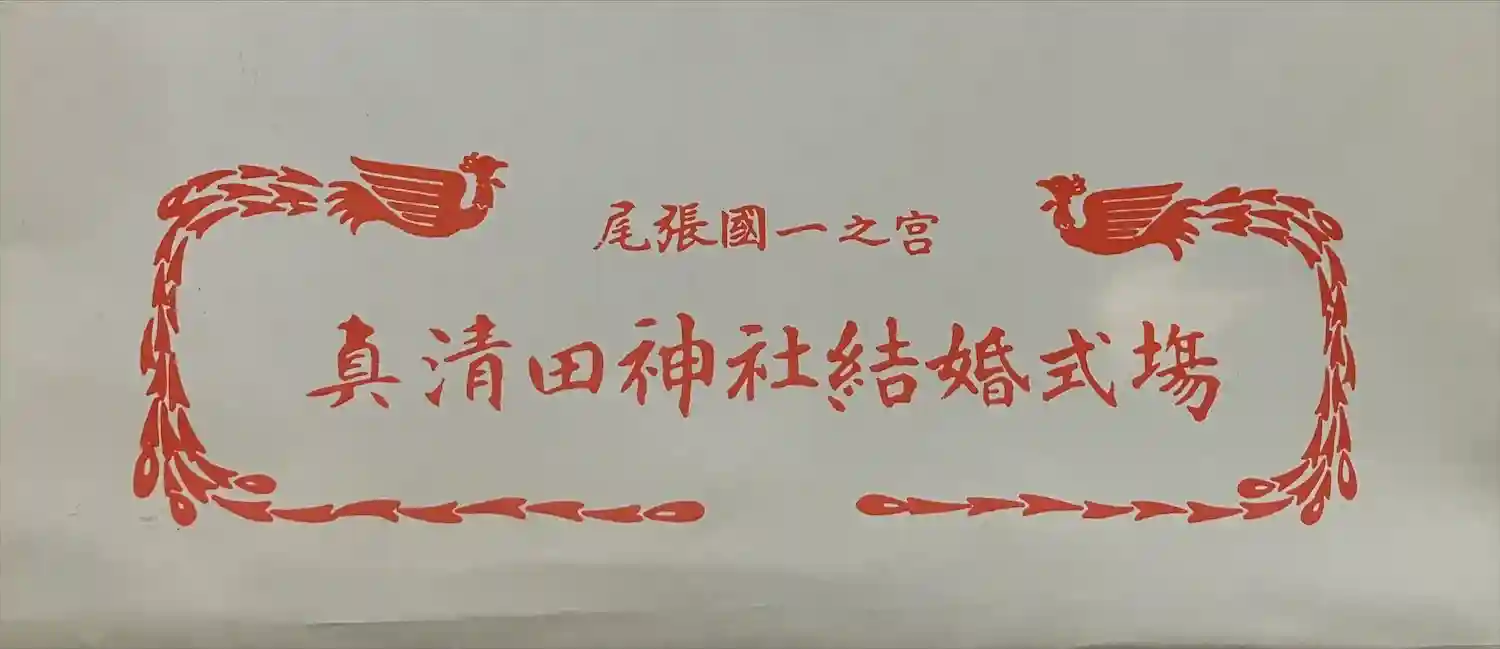 尾張國一之宮
真清田神社結婚式塲